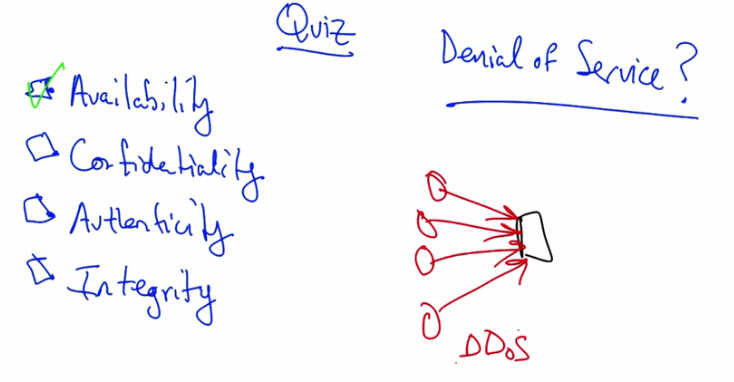 Quiz
Denial of Service?
Availability
Confidentiality
Authenticity
Integrity
DDoS